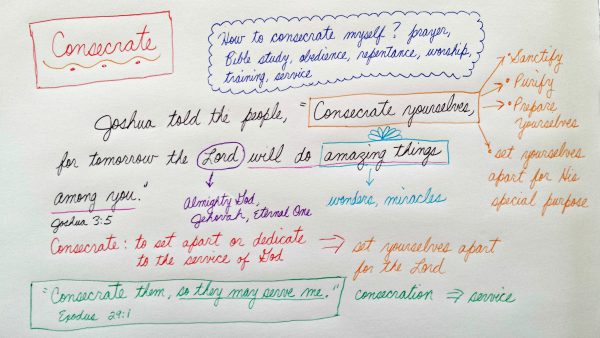 Consecrate
How to consecrate myself? prayer,
Bible study, obedience, repentance, worship,
training, service
Joshua told the people, "Consecrate yourselves,
for tomorrow the Lord will do amazing things
among you."
Joshua 3:5
• Sanctify
• Purify
• Prepare
yourselves
• set yourselves
apart for His
special purpose
Almighty God,
Jehovah, Eternal One
wonders, miracles
Consecrate: to set apart or dedicate
to the service of God
⇒ set yourselves apart
for the Lord
"Consecrate them, so they may serve me."
Exodus 29:1
consecration ⇒ service